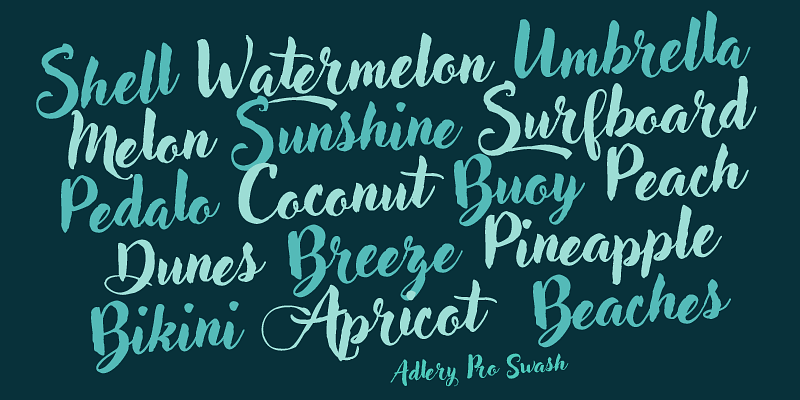 Shell Watermelon Umbrella
Melon Sunshine Surfboard
Pedalo Coconut Buoy Peach
Dunes Breeze Pineapple
Bikini Apricot Beaches
Adlery Pro Swash